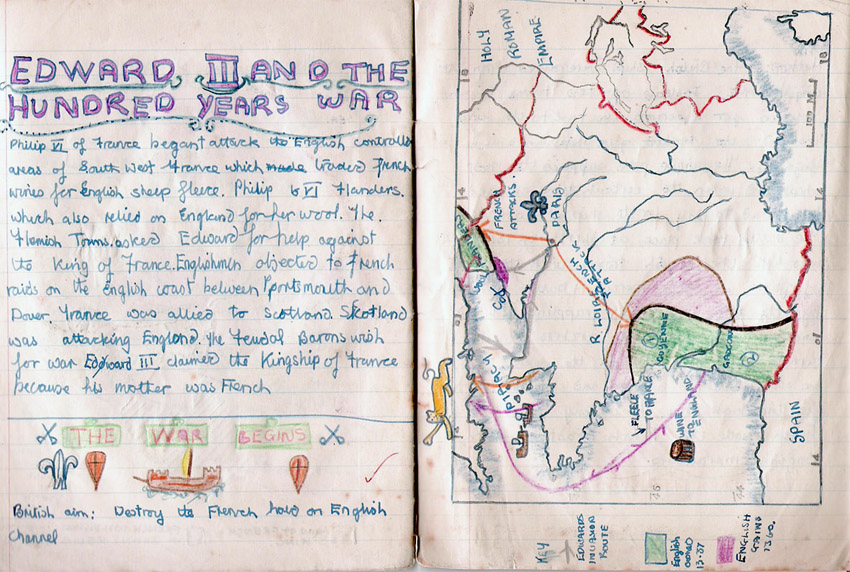 EDWARD III AND THE
HUNDRED YEARS WAR
Philip VI of France began attack the English controlled
areas of South West France which made traded French
wines for English sheep fleece. Philip VI Flanders.
which also relied on England for her wool. The
Flemish Towns asked Edward for help against
the King of France. Englishmen objected to French
raids on the English coast between Portsmouth and
Dover. France was allied to Scotland. Skotland
was attacking England. The Feudal Barons wish
for war Edward III claimed the Kingship of France
because his mother was French
THE WAR BEGINS
British aim: Destroy the French hold on English
channel
HOLY
ROMAN
EMPIRE
100 M
FRENCH
ATTACKS
PARIS
R LOIRE
FRENCH
ATTACK
PIRACY
GUYENNE
1
GASCONY
2
FLEECE
TO FRANCE
WINE
TO
ENGLAND
SPAIN
KEY
EDWARDS
INVASION
ROUTE
English
owned
ENGLISH
GAINS
1360